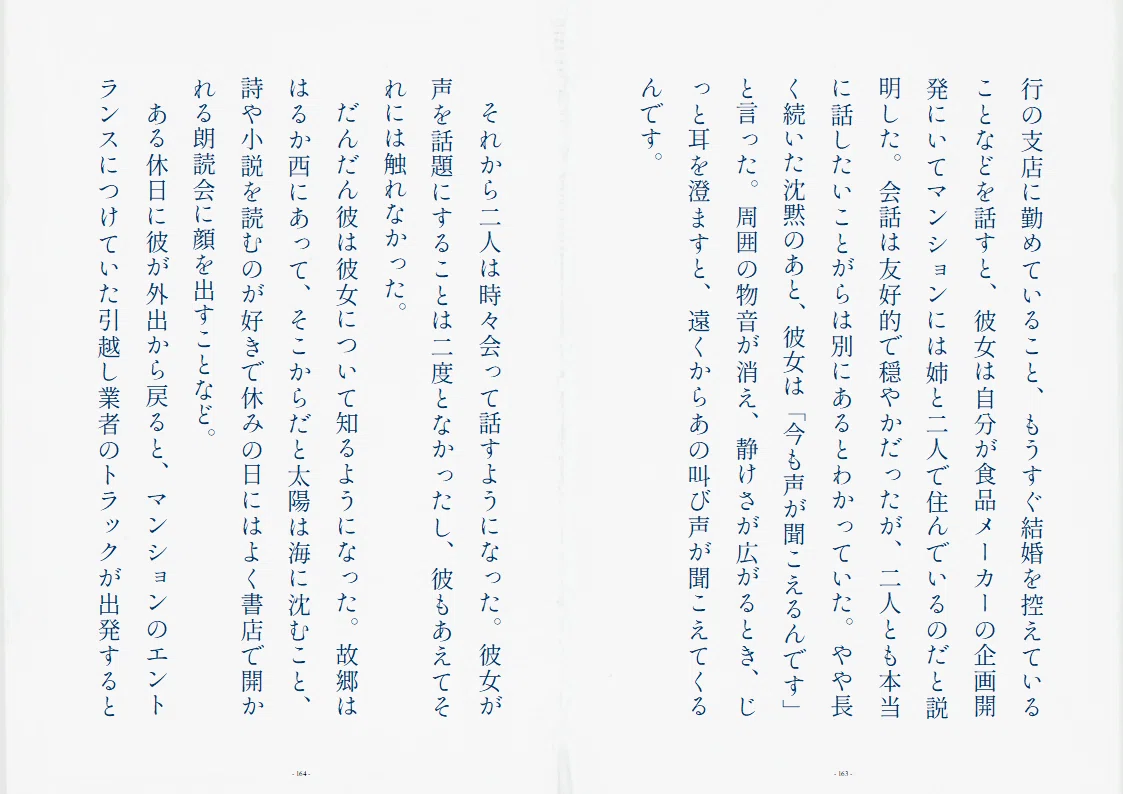 行の支店に勤めていること、もうすぐ結婚を控えている
ことなどを話すと、彼女は自分が食品メーカーの企画開
発にいてマンションには姉と二人で住んでいるのだと説
明した。会話は友好的で穏やかだったが、二人とも本当
に話したいことがらは別にあるとわかっていた。やや長
く続いた沈黙のあと、彼女は「今も声が聞こえるんです」
と言った。周囲の物音が消え、静けさが広がるとき、じ
っと耳を澄ますと、遠くからあの叫び声が聞こえてくる
んです。
- 163 -
それから二人は時々会って話すようになった。彼女が
声を話題にすることは二度となかったし、彼もあえてそ
れには触れなかった。
だんだん彼は彼女について知るようになった。故郷は
はるか西にあって、そこからだと太陽は海に沈むこと、
詩や小説を読むのが好きで休みの日にはよく書店で開か
れる朗読会に顔を出すことなど。
ある休日に彼が外出から戻ると、マンションのエント
ランスにつけていた引越し業者のトラックが出発すると
- 164 -